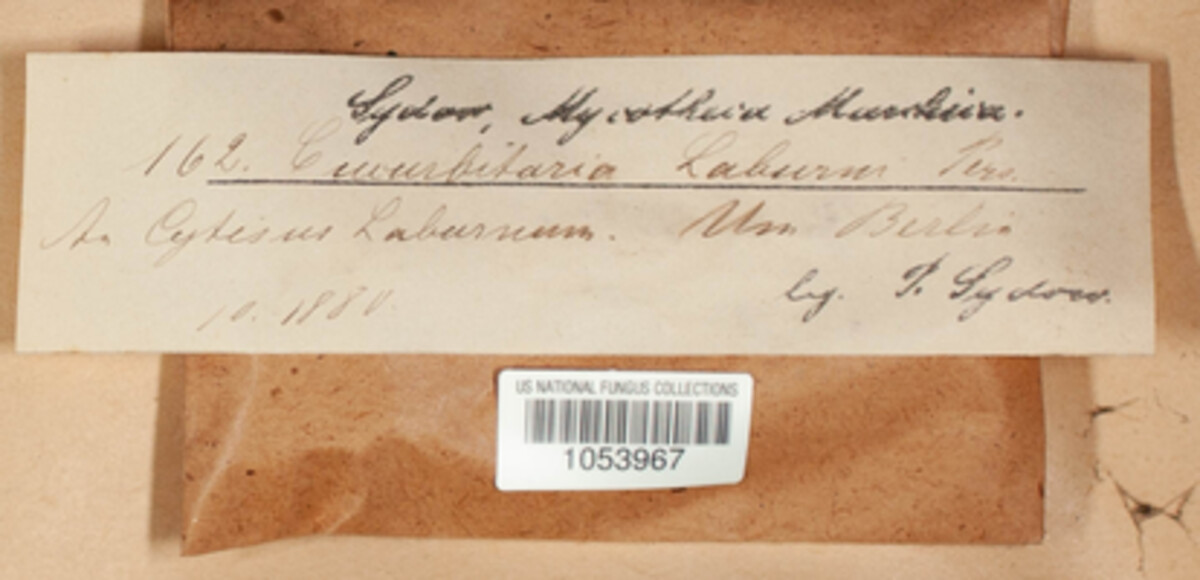 Sydow, Mycotheca Marchica.
162. Cucurbitaria Laburni Pers.
An Cytisus Laburnum. Um Berlin
10. 1880.
leg. P. Sydow.
US NATIONAL FUNGUS COLLECTIONS
1053967